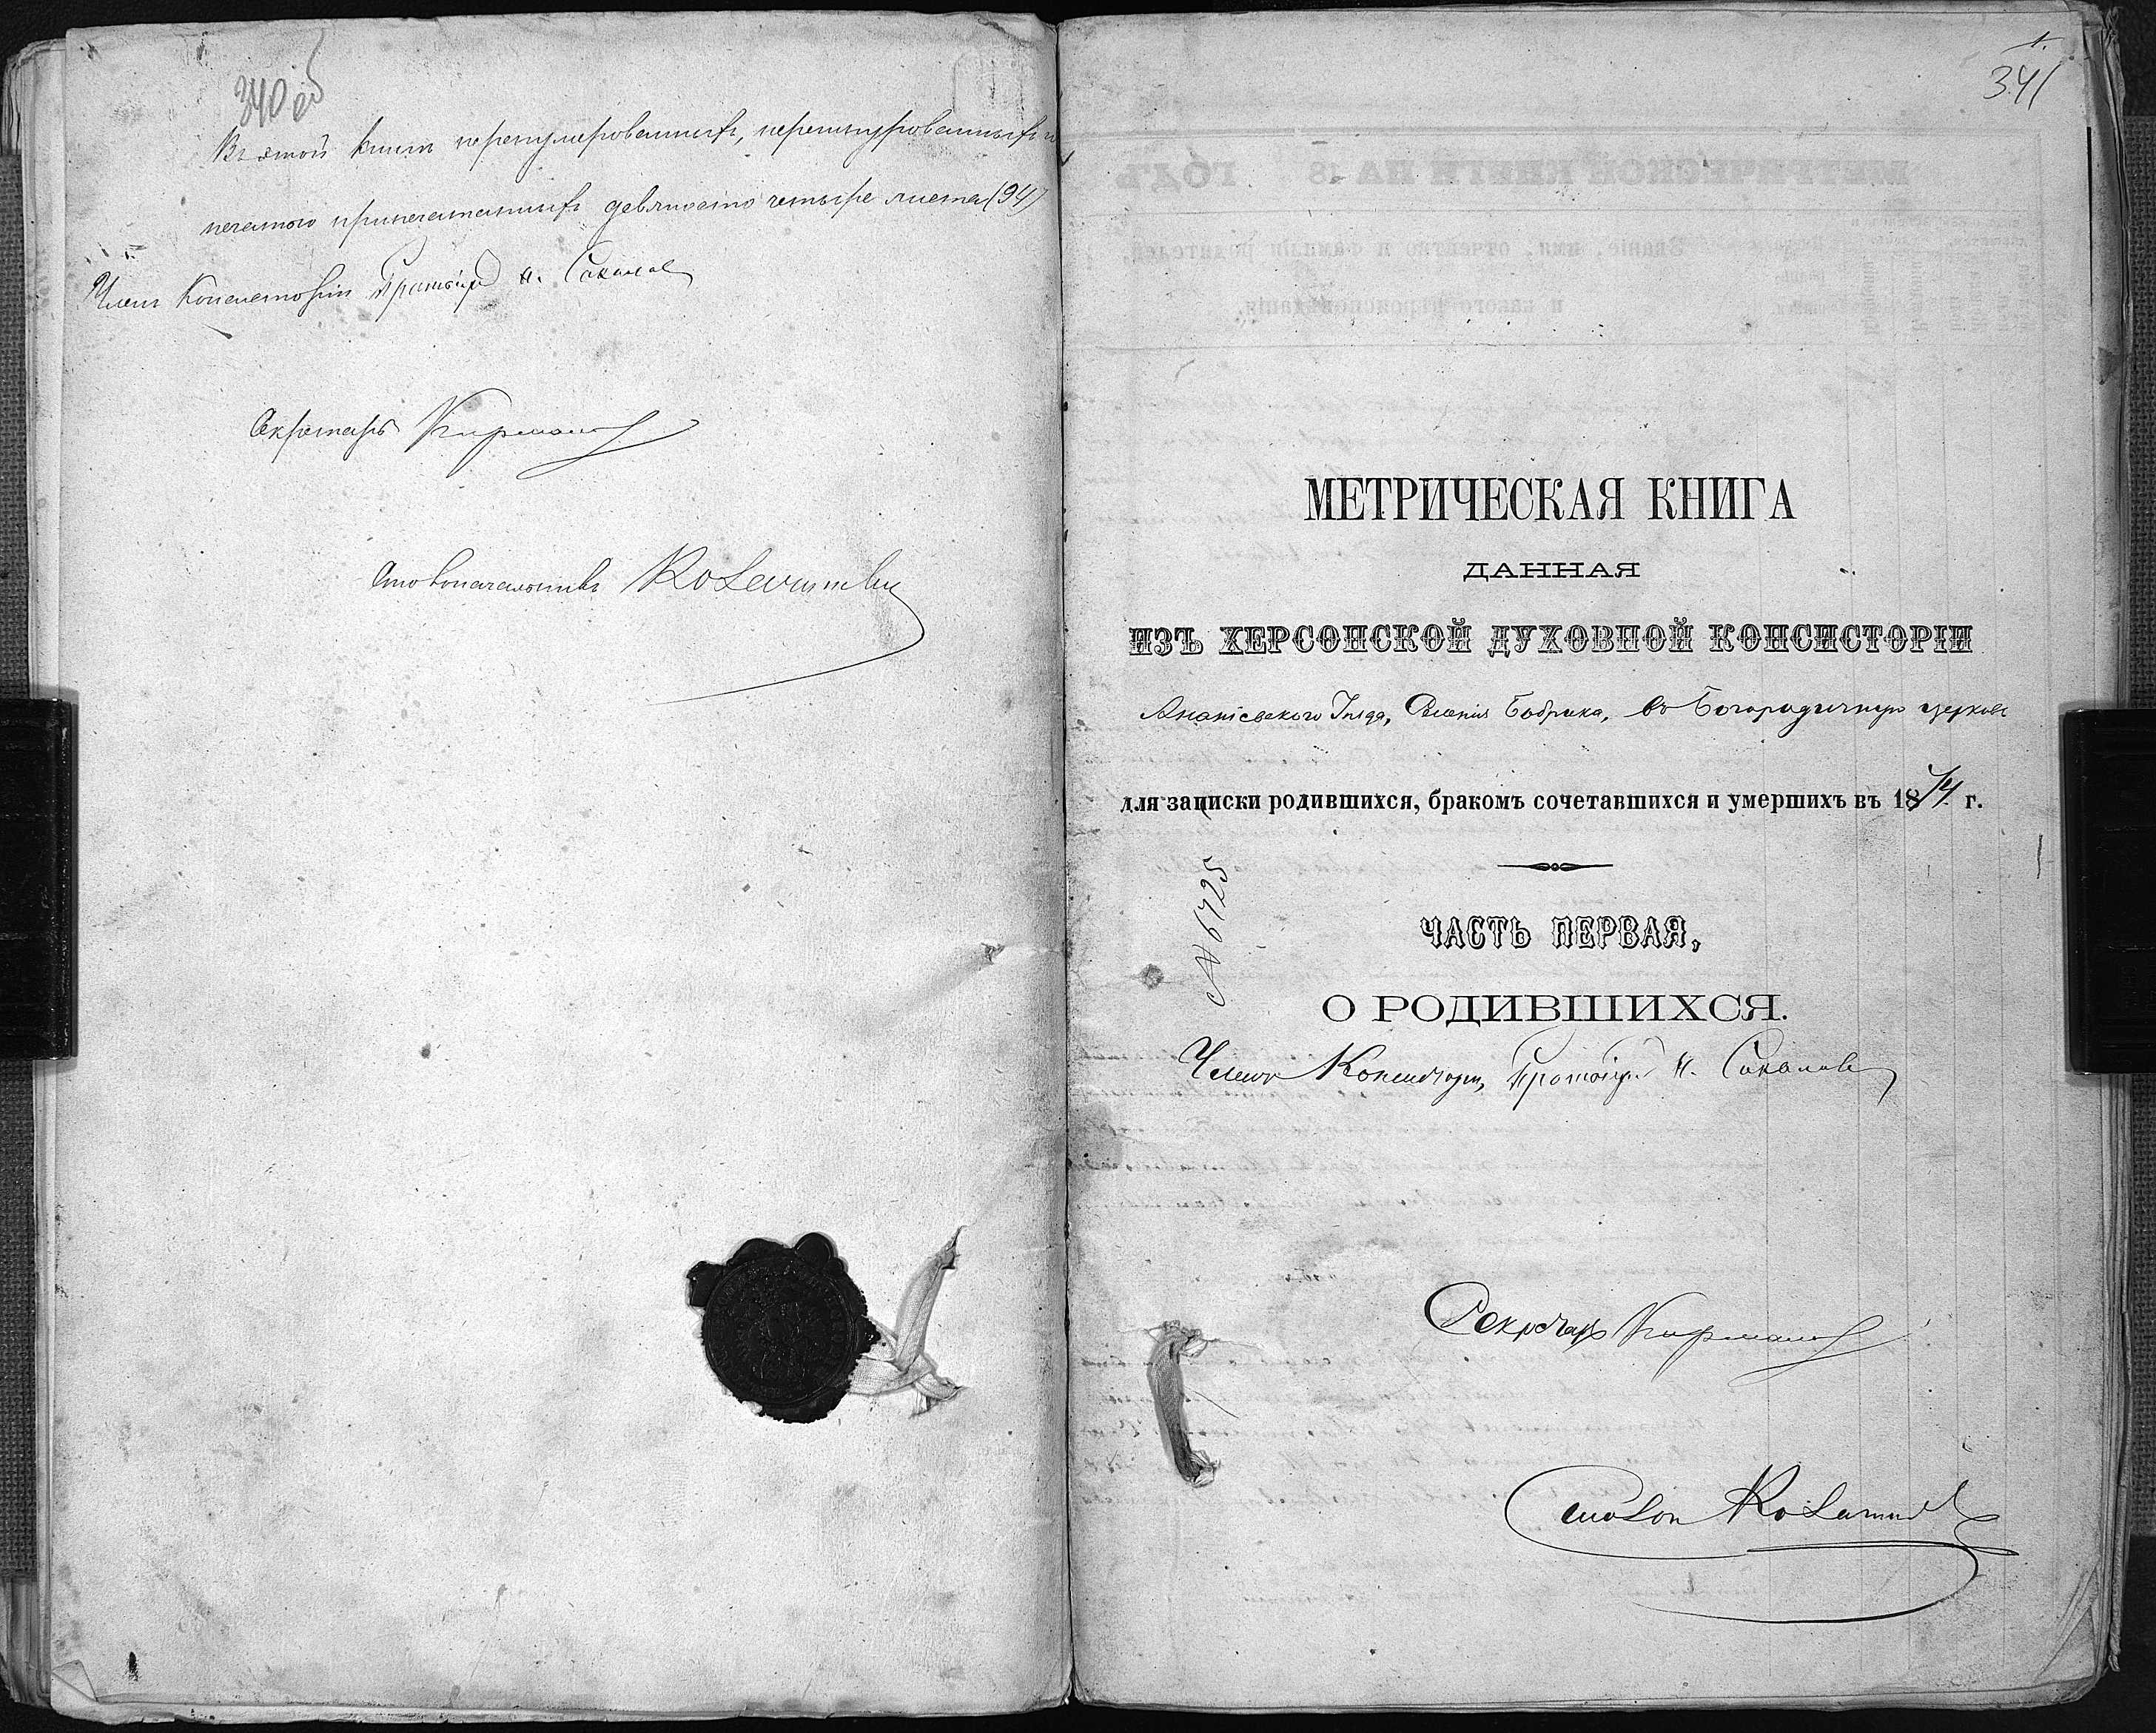 340 об
Въ этой книгѣ перенумерованныхъ, перешнурованныхъ и
печатью припечатанныхъ девяносто четыре листа (94)
Членъ Консисторіи Протоіерей Н. Соколовъ
Секретарь
Столоначальникъ
1.
341
МЕТРИЧЕСКАЯ КНИГА
ДАННАЯ
ИЗЪ ХЕРСОНСКОЙ ДУХОВНОЙ КОНСИСТОРІИ
Ананіевскаго Уѣзда, Селенія Бобрика, въ Богородичную церковь
для записки родившихся, бракомъ сочетавшихся и умершихъ въ 1874 г.
№ 6725
ЧАСТЬ ПЕРВАЯ,
О РОДИВШИХСЯ.
Членъ Консисторіи, Протоіерей Н. Соколовъ
Секретарь
Столон